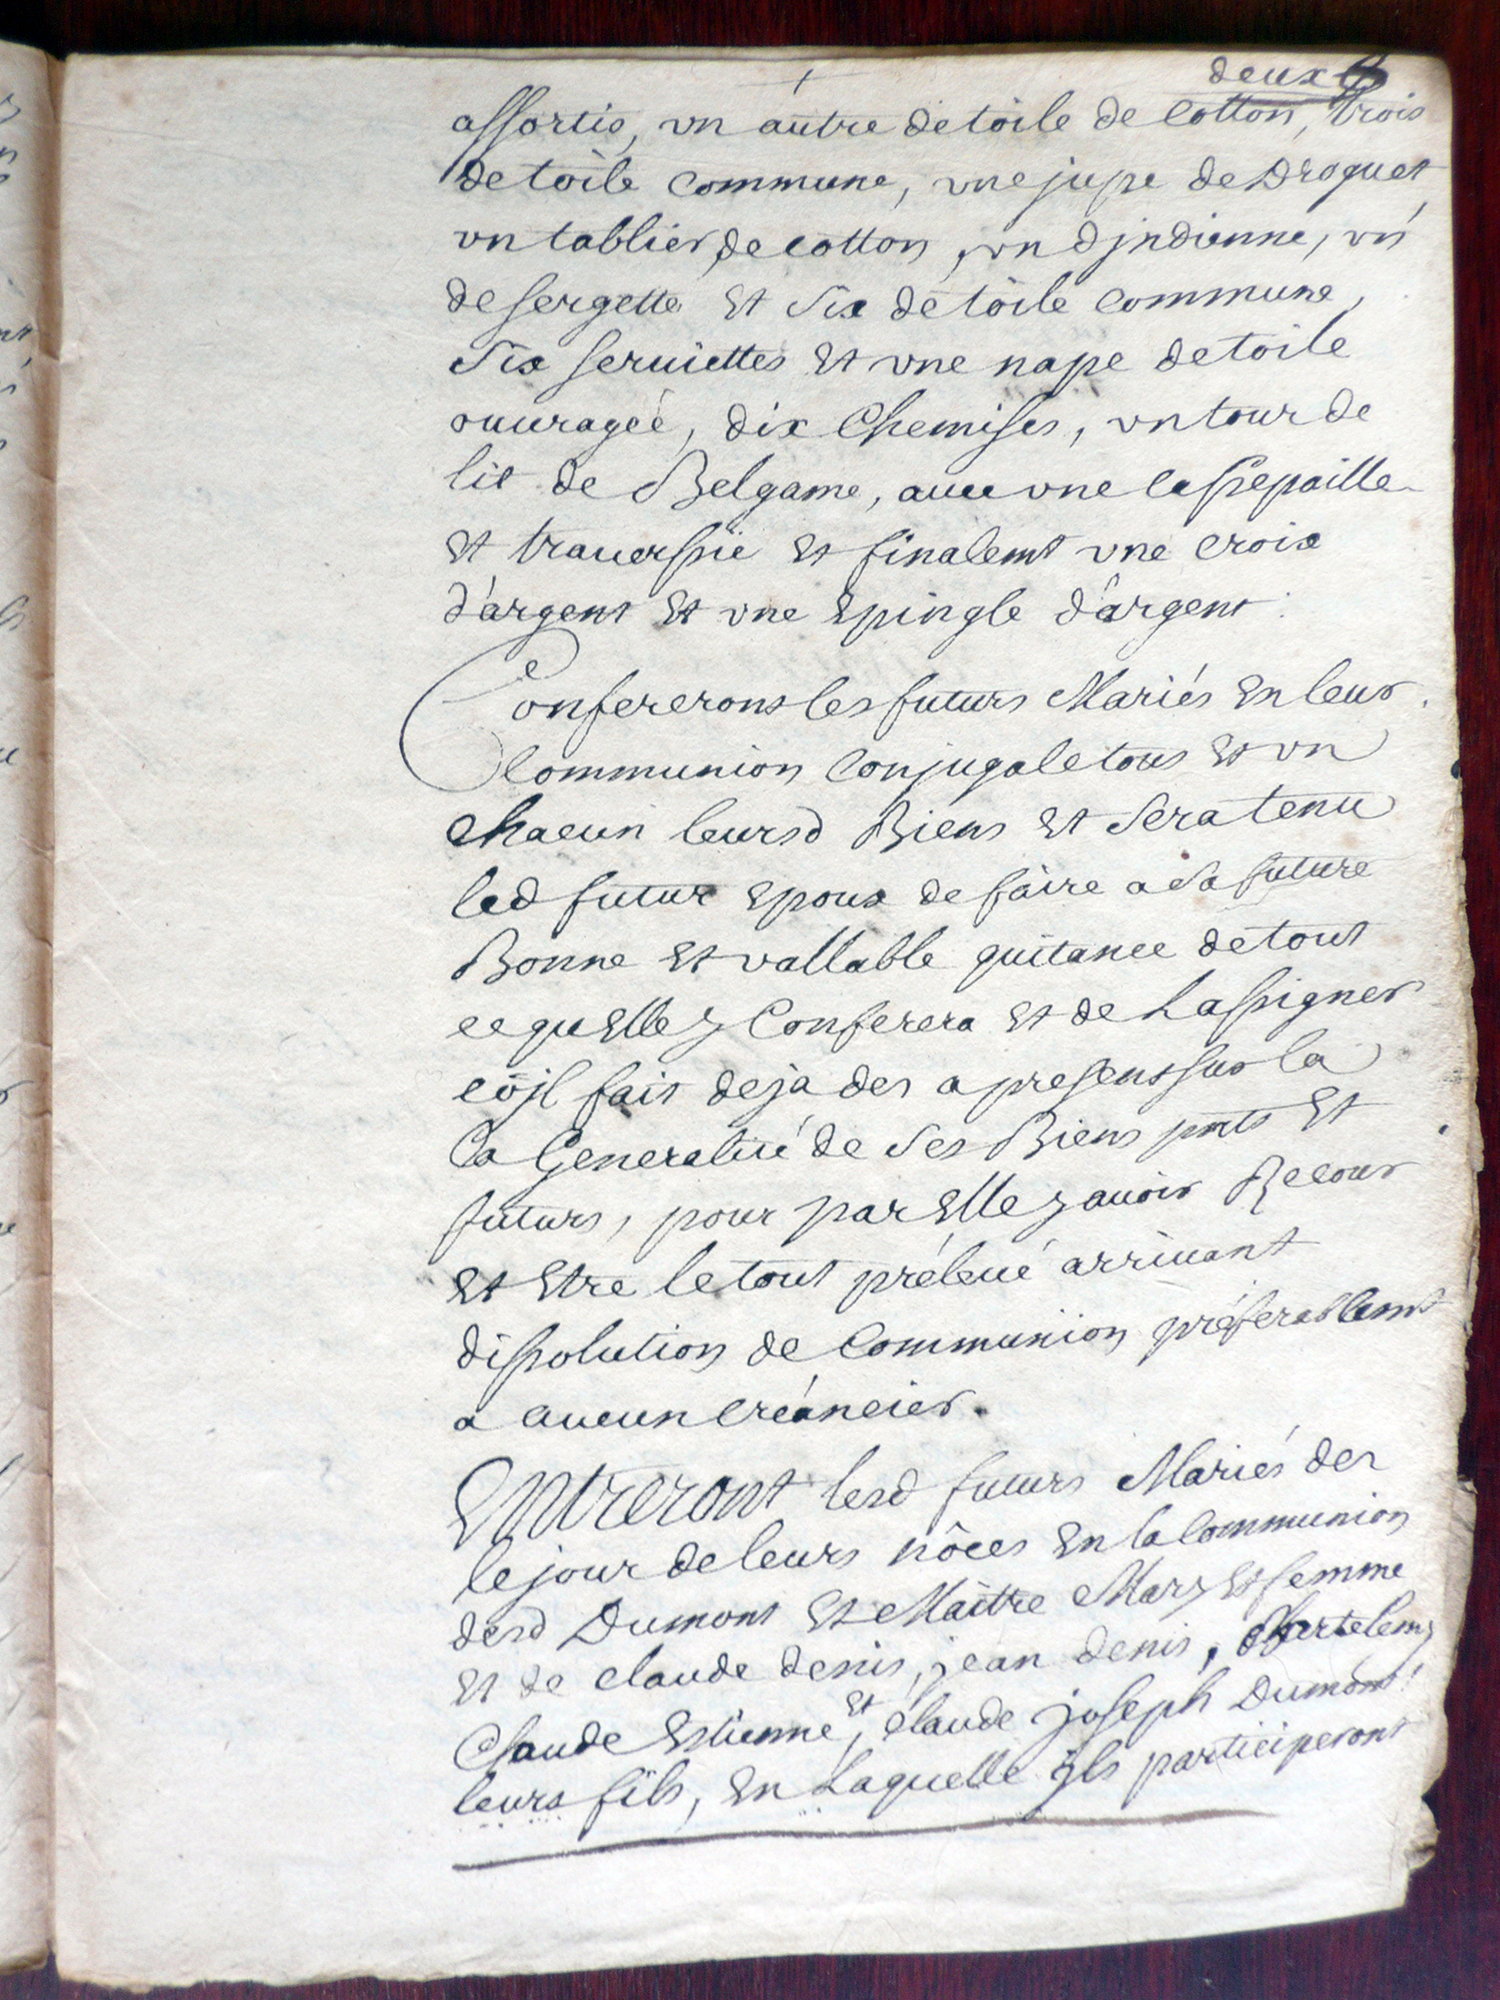 deux
assortis, vn autre de toile de Cotton, trois
de toile commune, vne jupe de Droguet
vn tablier, de cotton, vn djndienne, vn
de sergette Et Six de toile commune,
Six seruiettes Et vne nape de toile
ouuragée, dix Chemises, vn tour de
lit de Belgame, auec vne lassepaille
Et trauerssie Et finalemt vne croix
d'argent Et vne Epingle d'argent.
Confereront les futurs Mariés En leur
Communion Conjugale tous Et vn
chacun leursd Biens Et Sera tenu
led futur Epoux de faire a Sa future
Bonne Et vallable quitance de tout
ce quElle y Conferera Et de Lassigner
cõe jl fait deja des a present sur la
la Generalité de Ses Biens pnts Et
futurs, pour par Elle y auoir Recour
Et Etre le tout préleué arriuant
dissolution de Communion préferablemt
a aucun créancier.
Entreront lesd futurs Mariés des
le jour de leurs nôces En la Communion
desd Dumont Et Maitre Mary Et femme
Et de claude denis, jean denis, Bartelemy
Claude Estienne, Et claude joseph Dumont
leurs fils, En Laquelle jls participeront